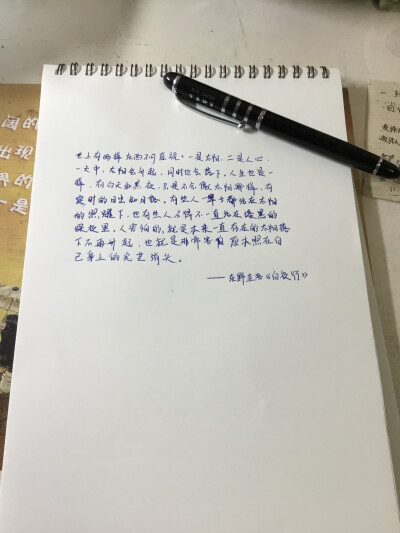 世上有两样东西不可直视，一是太阳，二是人心。
一天中，太阳会升起，同时也会落下，人生也是一
样，有白天和黑夜，只是不会像太阳那样，有
定时的日出和日落。有些人一辈子都活在太阳
的照耀下，也有些人不得不一直活在漆黑的
深夜里。人害怕的，就是本来一直存在的太阳落
下不再升起，也就是非常害怕原本照在自
己身上的光芒消失。
——东野圭吾《白夜行》
阔的
出现
界的
一是